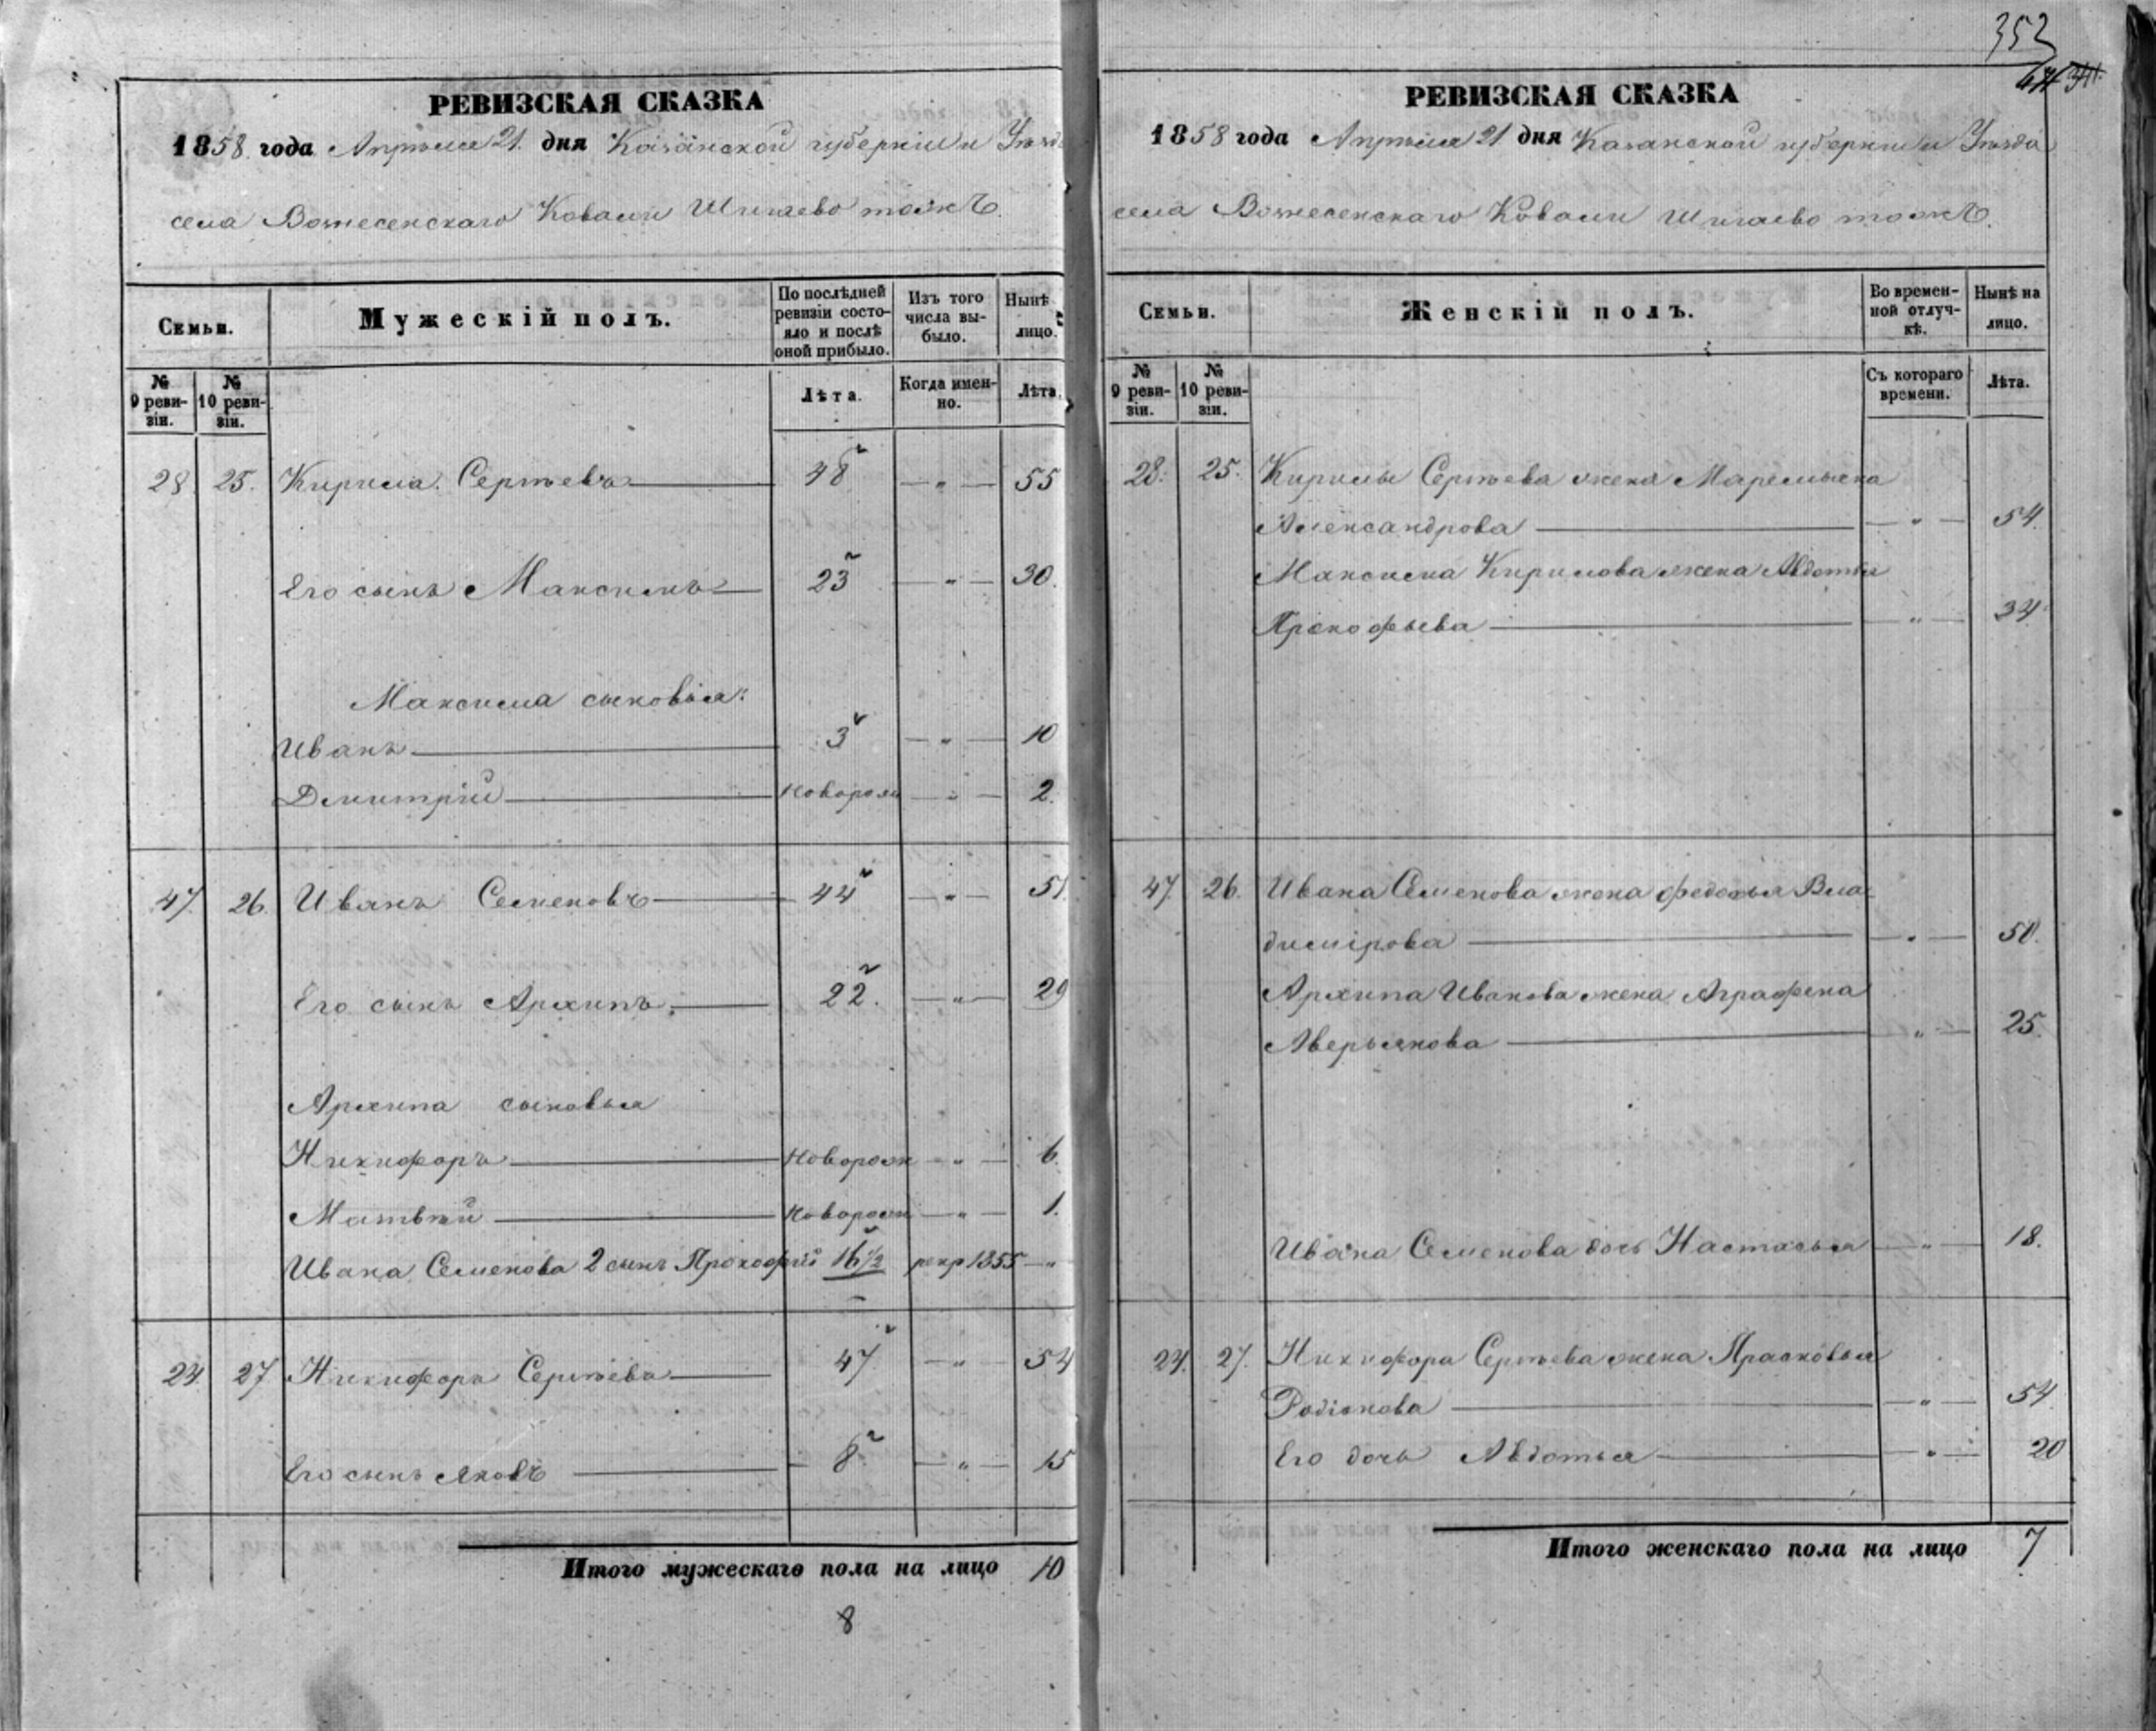 352
РЕВИЗСКАЯ СКАЗКА
1858 года Апрѣля 21 дня Казанской губерніи и Уѣзда
села Вознесенскаго Ковали Шигаево тожъ.
Семьи.
Мужескій полъ.
По послѣдней ревизіи состояло и послѣ оной прибыло.
Изъ того числа выбыло.
Нынѣ лицо.
№ 9 ревизіи.
№ 10 ревизіи.
Лѣта.
Когда именно.
Лѣта.
28. 25. Кирила Сергѣевъ 48 — " — 55
Его сынъ Максимъ 23 — " — 30.
Максима сыновья:
Иванъ 3 — " — 10
Дмитрій новорож — " — 2.
47. 26. Иванъ Семеновъ 44 — " — 51.
Его сынъ Архипъ. 22. — " — 29
Архипа сыновья
Никифоръ Новорож — " — 6.
Матвѣй Новорож — " — 1.
Ивана Семенова 2 сынъ Прокофій 16 1/2 рекр 1855 — "
24. 27 Никифоръ Сергѣевъ 47. — " — 54
Его сынъ Яковъ 8. — " — 15
Итого мужескаго пола на лицо 10
8
РЕВИЗСКАЯ СКАЗКА
1858 года Апрѣля 21 дня Казанской губерніи и Уѣзда
села Вознесенскаго Ковали Шигаево тожъ.
Семьи.
Женскій полъ.
Во временной отлучкѣ.
Нынѣ на лицо.
№ 9 ревизіи.
№ 10 ревизіи.
Съ котораго времени.
Лѣта.
28. 25. Кирилы Сергѣева жена Маремьяна
Александрова — " — 54.
Максима Кирилова жена Авдотья
Прокофьева — " — 34.
47. 26. Ивана Семенова жена Федосья Вла-
димірова — " — 50.
Архипа Иванова жена Аграфена
Аверьянова — " — 25.
Ивана Семенова дочь Настасья — " — 18.
24. 27. Никифора Сергѣева жена Прасковья
Родіонова — " — 54.
Его дочь Авдотья — " — 20
Итого женскаго пола на лицо 7